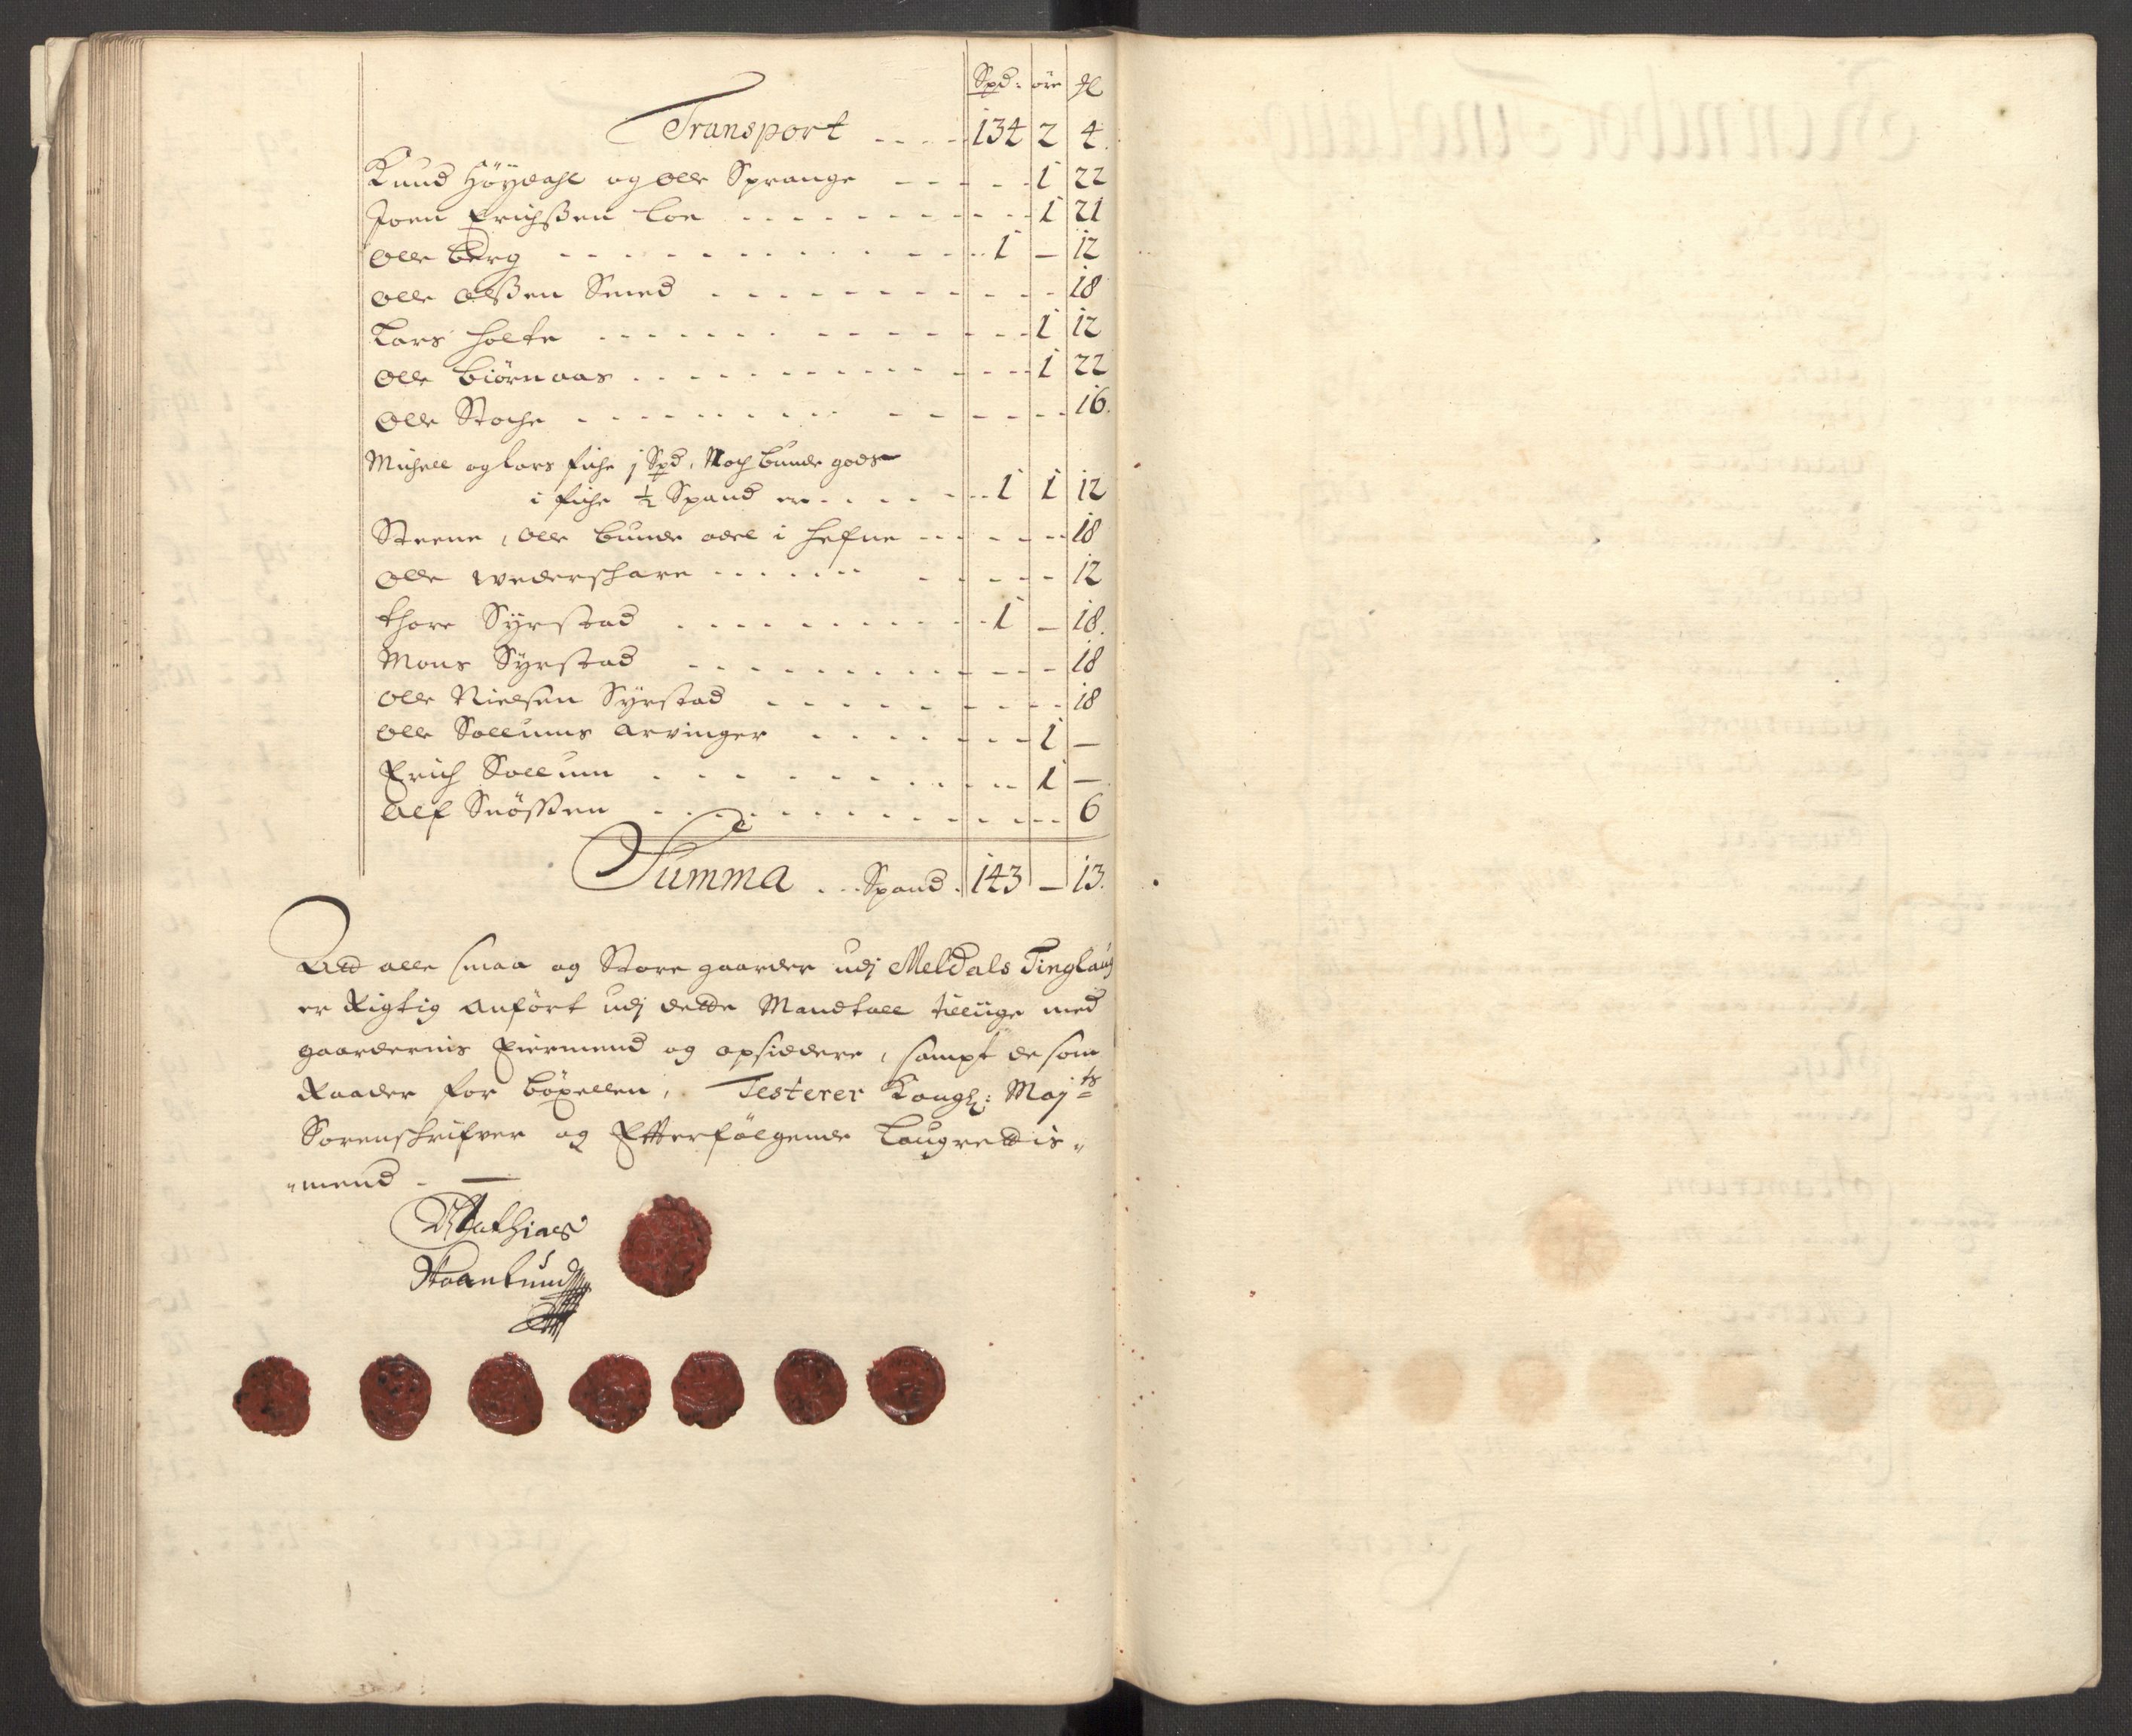 Spd: öre ℔
Transport - - - - 134 2 4.
Knud Höydahl og Olle Sprange - - - - - 1 22
Joen Erichßen Loe - - - - - - - - 1 21
Olle Berg - - - - - - - - 1 — 12
Olle Olßen Smed - - - - - - - - 18
Lars Holte - - - - - - - - 1 12
Olle Biörnaas - - - - - - - - 1 22
Olle Stoche - - - - - - - - 16.
Michell og Lars fiche j Spd, Noch bunde gods
i fiche ½ Spand er - - - - - 1 1 12
Steene, Olle bunde odel i hefne - - - - - 18
Olle wederschare - - - - - - - - 12
Thore Syrstad - - - - - - - - 1 — 18.
Mons Syrstad - - - - - - - - 18
Olle Nielsen Syrstad - - - - - - - - 18
Olle Sollums Arvinger - - - - - - - 1 —
Erich Sollum - - - - - - - - 1 —
Olf Snößen - - - - - - - - 6
Summa - - - Spand. 143 — 13.
Att alle smaa og Store gaarder udj Meldals Tinglaug
er Rigtig Anfört udj dette Mandtall tilliige med
gaardernis Eiermend og opsiddere, sampt de som
Raader for böxellen, Testerer Kongl: Maj:ts
Sorenschrifver og Efterfölgende Laugrettis„
„mend - —
Mathias